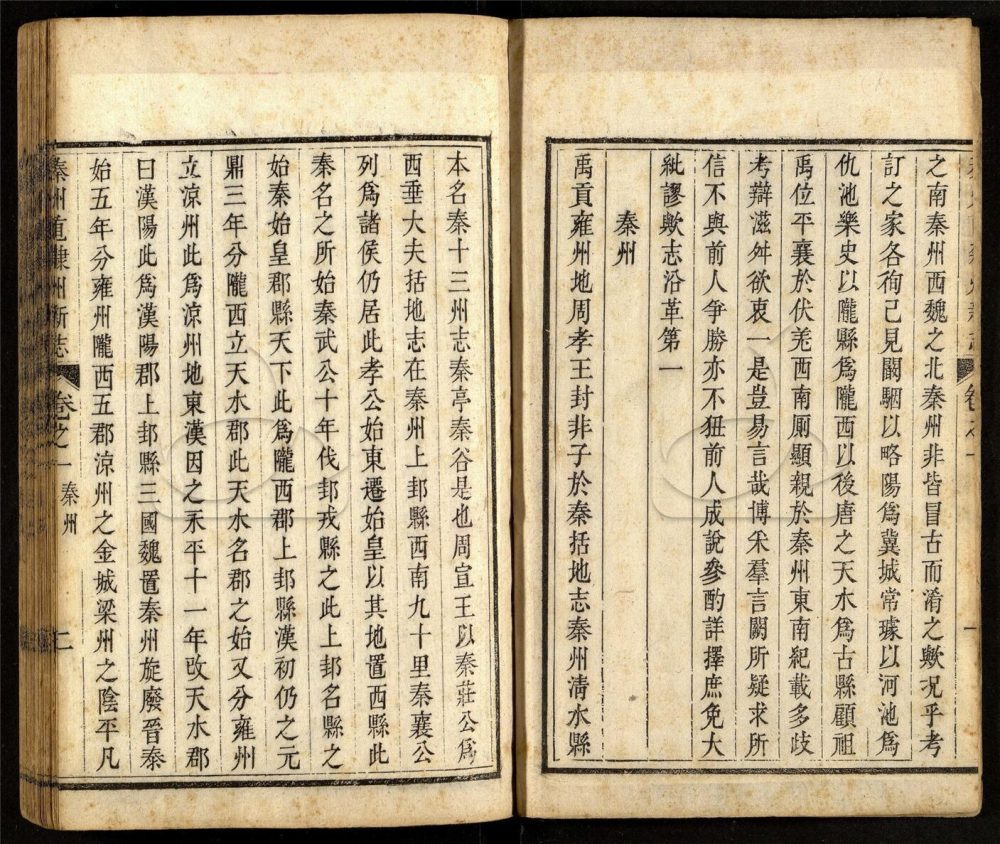 之南秦州西魏之北秦州非皆冒古而淆之歟况乎考
訂之家各徇己見闞駰以略陽爲冀城常璩以河池爲
仇池樂史以隴縣爲隴西以後唐之天水爲古縣顧祖
禹位平襄於伏羌西南厠顯親於秦州東南紀載多歧
考辯滋舛欲衷一是豈易言哉博釆羣言闕所疑求所
信不與前人爭勝亦不狃前人成說參酌詳擇庶免大
紕謬歟志沿革第一
秦州
禹貢雍州地周孝王封非子於秦括地志秦州淸水縣
本名秦十三州志秦亭秦谷是也周宣王以秦莊公爲
西垂大夫括地志在秦州上邽縣西南九十里秦襄公
列爲諸侯仍居此孝公始東遷始皇以其地置西縣此
秦名之所始秦武公十年伐邽戎縣之此上邽名縣之
始秦始皇郡縣天下此爲隴西郡上邽縣漢初仍之元
鼎三年分隴西立天水郡此天水名郡之始又分雍州
立凉州此爲凉州地東漢因之永平十一年改天水郡
曰漢陽此爲漢陽郡上邽縣三國魏置秦州旋廢晉泰
始五年分雍州隴西五郡凉州之金城梁州之陰平凡
秦州直隸州新志 卷之一 秦州 二